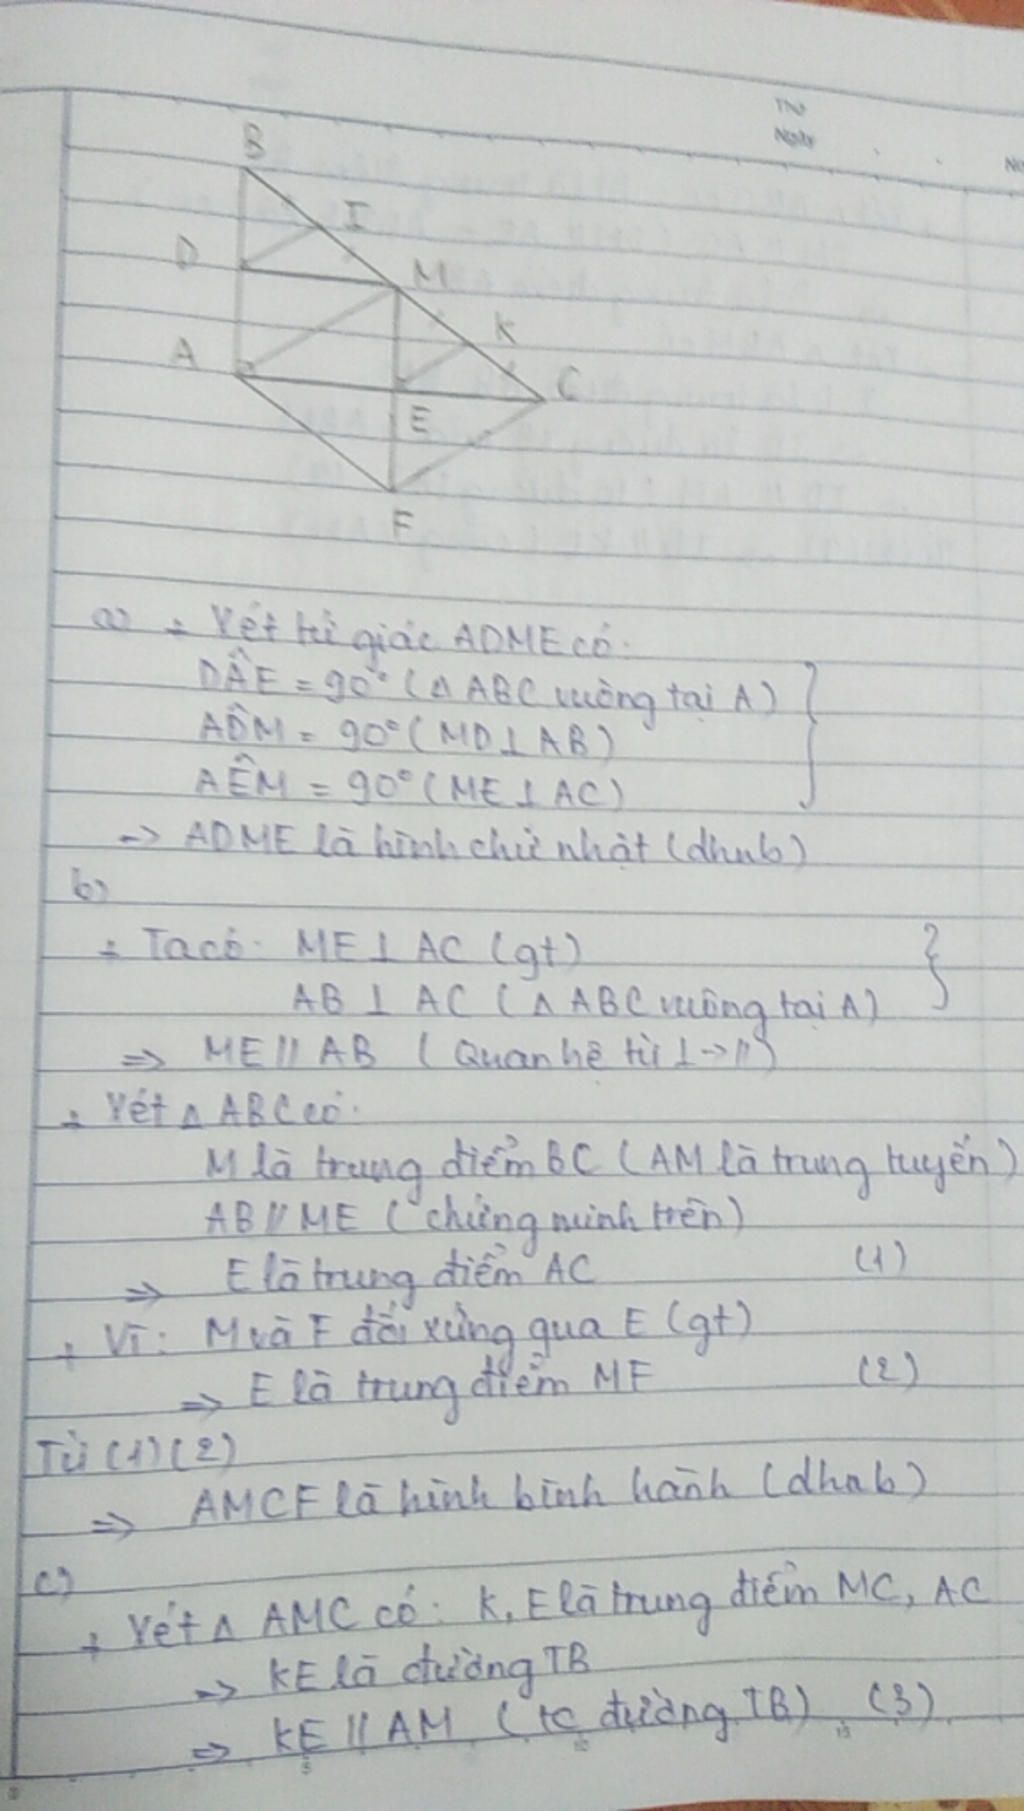 Thứ
Ngày
No
B
I
D
M
K
A
C
E
F
a) + Xét tứ giác ADME có:
DÂE = 90° (Δ ABC vuông tại A)
AD̂M = 90° (MD ⊥ AB)
AÊM = 90° (ME ⊥ AC)
=> ADME là hình chữ nhật (dhnb)
b)
+ Ta có: ME ⊥ AC (gt)
AB ⊥ AC (Δ ABC vuông tại A)
=> ME // AB (Quan hệ từ ⊥ -> //)
+ Xét Δ ABC có:
M là trung điểm BC (AM là trung tuyến)
AB // ME (chứng minh trên)
=> E là trung điểm AC (1)
+ Vì: M và F đối xứng qua E (gt)
=> E là trung điểm MF (2)
Từ (1) (2)
=> AMCF là hình bình hành (dhnb)
c)
+ Xét Δ AMC có: K, E là trung điểm MC, AC
=> KE là đường TB
=> KE // AM (tc đường TB) (3)